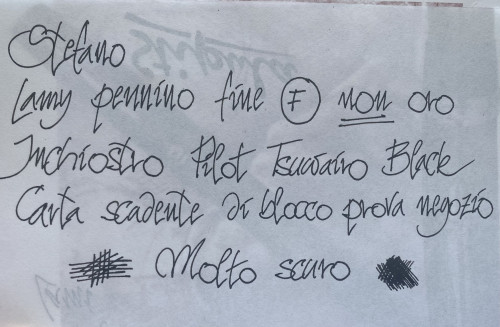 Stefano
Lamy pennino fine F non oro
Inchiostro Pilot Tsuwairo Black
Carta scadente di blocco prova negozio
Molto scuro